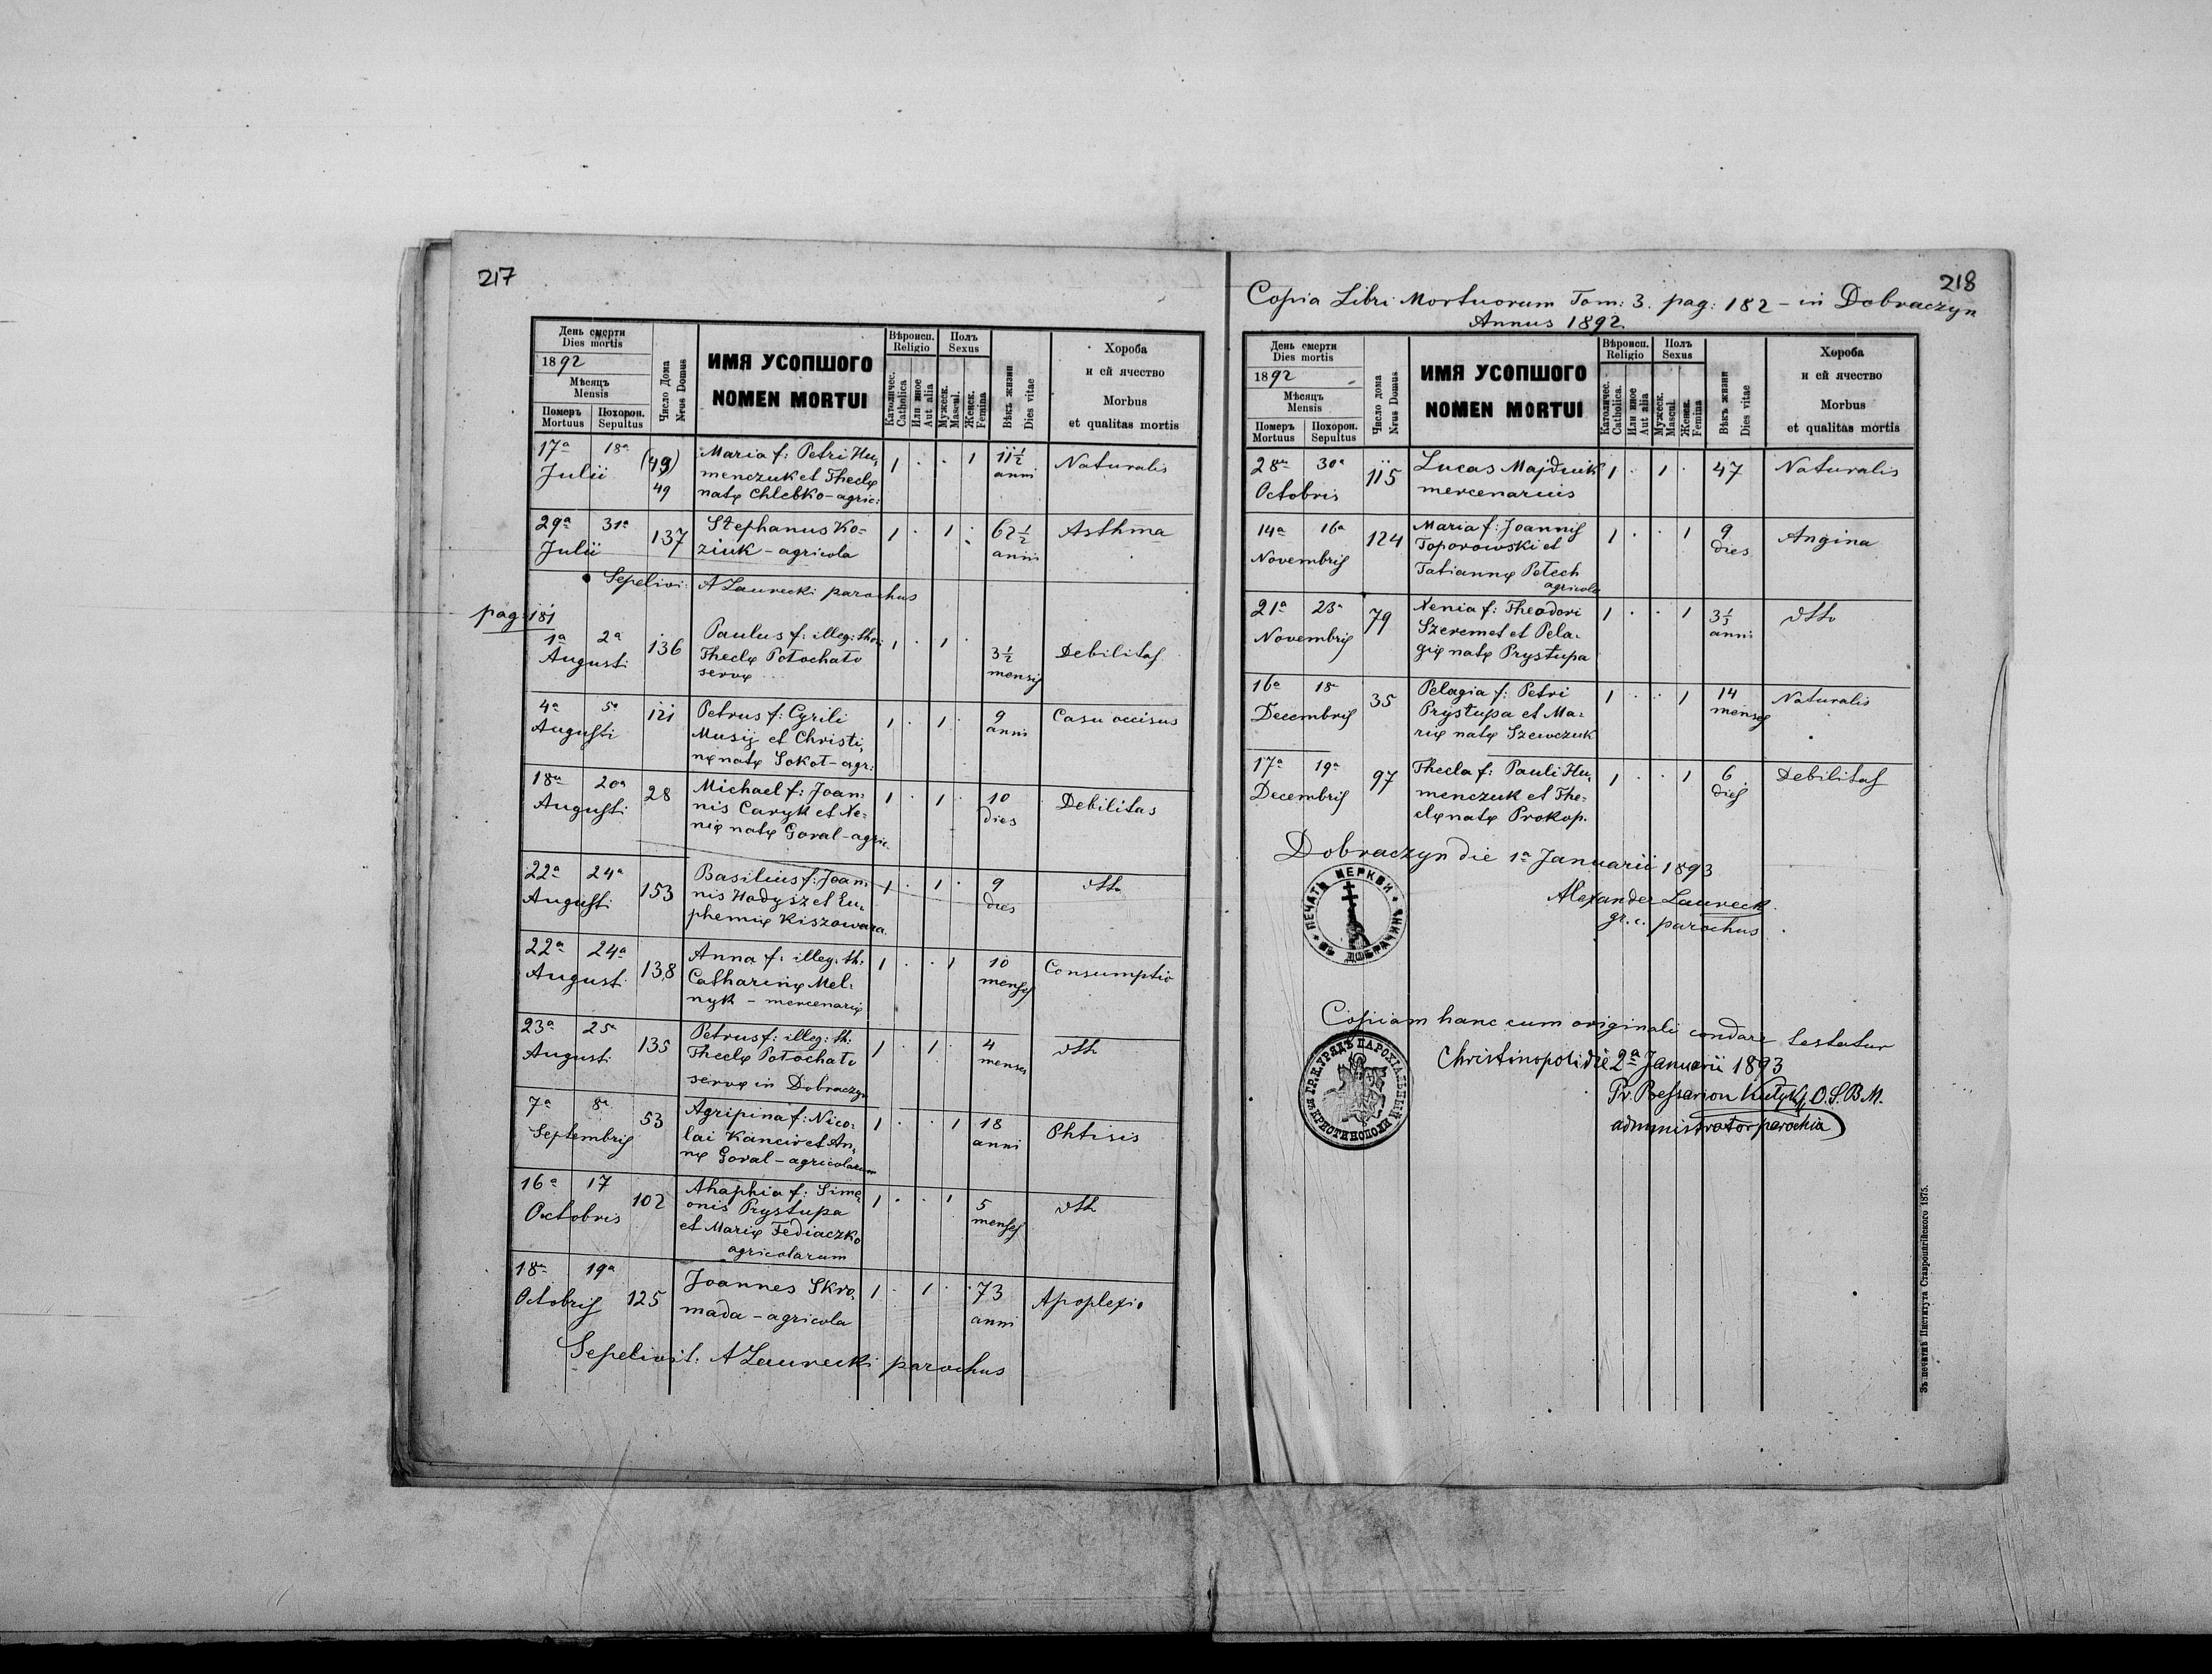 217
День смерти
Dies mortis
1892
Мѣсяцъ
Mensis
Померъ Похорон.
Mortuus Sepultus
Число Дома
Nrus Domus
ИМЯ УСОПШОГО
NOMEN MORTUI
Вѣроисп.
Religio
Католичес.
Catholica
Или иное
Aut alia
Полъ
Sexus
Мужеск.
Mascul.
Женск.
Femina
Вѣкъ жизни
Dies vitae
Хороба
и ей ячество
Morbus
et qualitas mortis
17ª 18ª (49) Maria f: Petri Hu, 1 . . 1 11½ Naturalis
Julii 49 menczuk et Theclę anni
natę Chlebko - agric:
29ª 31ª 137 Stephanus Ko= 1 . 1 . 62½ Asthma
Julii ziuk - agricola anni
Sepelivi: A Laurecki parochus
pag: 181
1ª 2ª 136 Paulus f: illeg: thori 1 . 1 . 3½ Debilitas
Augusti Theclę Potochato mensis
servę
4ª 5ª 121 Petrus f: Cyrili 1 . 1 . 9 Casu occisus
Augusti Musij et Christi, anni
nę natę Sokot - agr:
18ª 20ª 28 Michael f: Joan= 1 . 1 . 10 Debilitas
Augusti nis Caryk et Xe= dies
nię natę Goral - agric.
22ª 24ª 153 Basilius f: Joan= 1 . 1 . 9 dtto
Augusti nis Hadysz et Eu, dies
phemię Kiszowara
22ª 24ª 138 Anna f: illeg: th: 1 . . 1 10 Consumptio
August: Catharinę Mel= menses
nyk - mercenarię
23ª 25ª 135 Petrus f: illeg: th: 1 . 1 . 4 dtto
August: Theclę Potochato menses
servę in Dobraczyn
7ª 8ª 53 Agripina f: Nico= 1 . . 1 18 Phtisis
Septembris lai Kancir et An, anni
nę Goral - agricolarum
16ª 17 102 Ahaphia f: Sime, 1 . . 1 5 dtto
Octobris onis Prystupa menses
et Marię Fediaczko
agricolarum
18ª 19ª 125 Joannes Skro, 1 . 1 . 73 Apoplexio
Octobris mada - agricola anni
Sepelivit: A Laurecki parochus
218
Copia Libri Mortuorum Tom: 3. pag: 182 - in Dobraczyn
Annus 1892.
День смерти
Dies mortis
1892
Мѣсяцъ
Mensis
Померъ Похорон.
Mortuus Sepultus
Число дома
Nrus Domus
ИМЯ УСОПШОГО
NOMEN MORTUI
Вѣроисп.
Religio
Католичес.
Catholica.
Или иное
Aut alia
Полъ
Sexus
Мужеск.
Mascul.
Женск.
Femina
Вѣкъ жизни
Dies vitae
Хороба
и ей ячество
Morbus
et qualitas mortis
28ª 30ª 115 Lucas Majdnik 1 . 1 . 47 Naturalis
Octobris mercenarius
14ª 16ª 124 Maria f: Joannis 1 . . 1 9 Angina
Novembris Toporowski et dies
Tatiannę Petech
agricola
21ª 23ª 79 Xenia f: Theodori 1 . . 1 3½ dtto
Novembris Szeremet et Pela= anni
gię natę Prystupa
16ª 18ª 35 Pelagia f: Petri 1 . . 1 14 Naturalis
Decembris Prystupa et Ma= menses
rię natę Szewczuk
17ª 19ª 97 Thecla f: Pauli Hu, 1 . . 1 6 Debilitas
Decembris menczuk et The= dies
clę natę Prokop.
Dobraczyn die 1ª Januarii 1893
Alexander Laurecki
gr. c. parochus
ПЕЧАТЬ ЦЕРКВИ
Copiam hanc cum originali condare testatur
Christinopoli die 2ª Januarii 1893
Pr. Bessarion Kutyk, O.S.B.M.
administrator parochia
ГР.К.УРЯДЪ ПАРОХІАЛЬНЫЙ
Зъ печатнѣ Института Ставропигійского 1875.